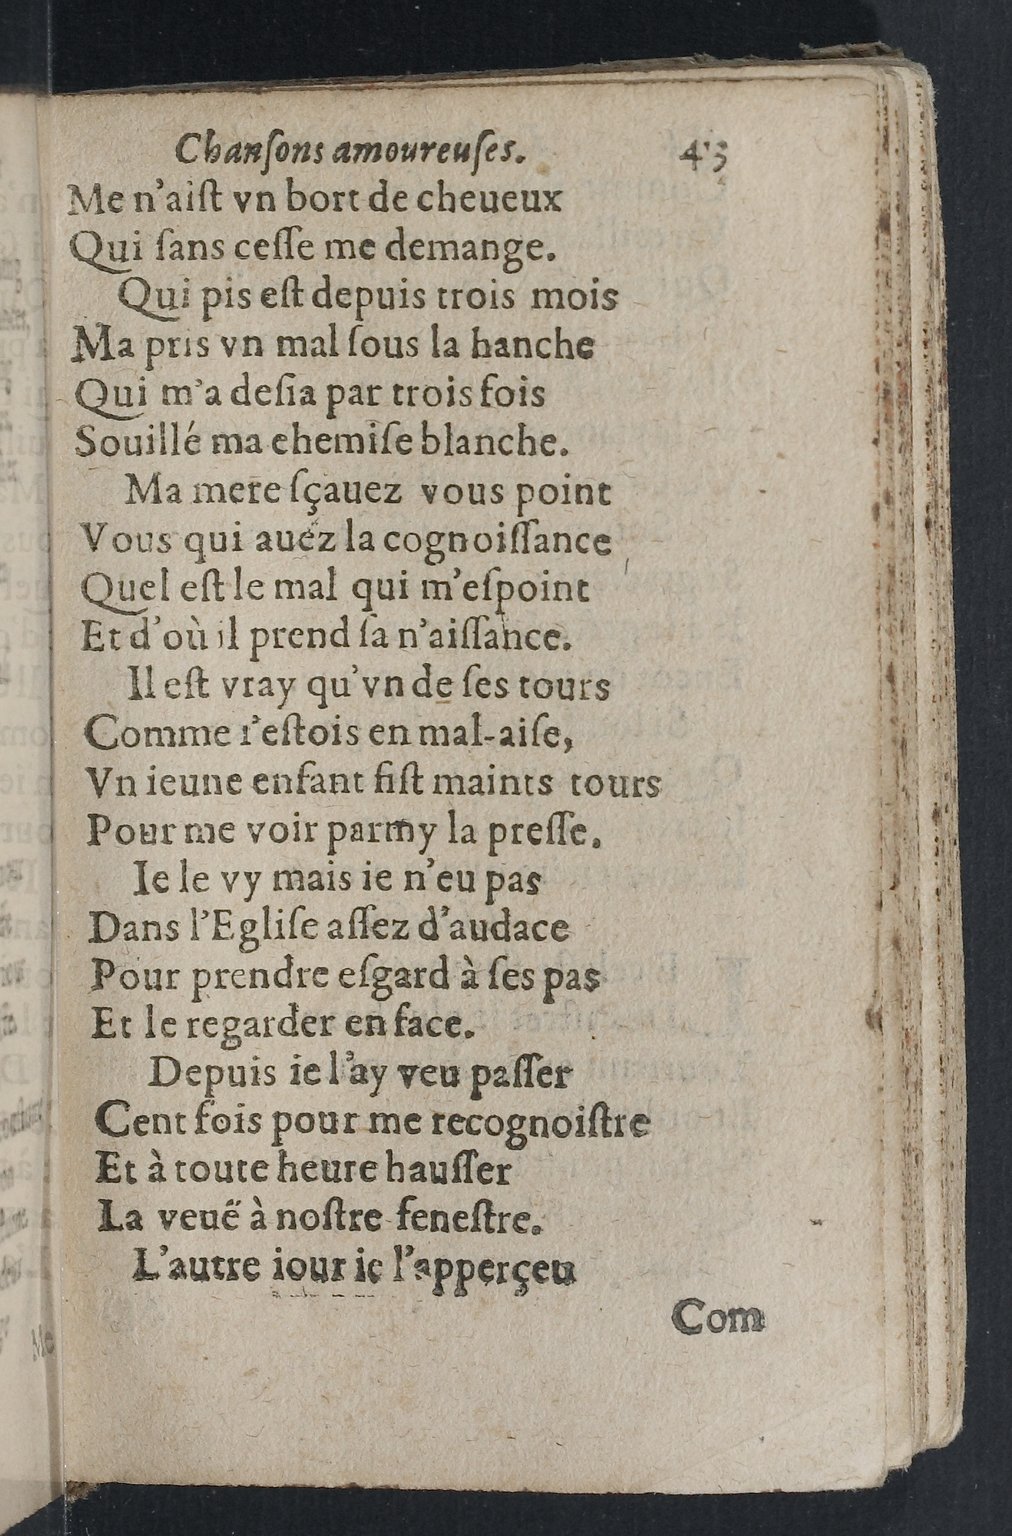 Chanſons amoureuſes. 45
Me n'aiſt vn bort de cheueux
Qui ſans ceſſe me demange.
Qui pis eſt depuis trois mois
Ma pris vn mal ſous la hanche
Qui m'a deſia par trois fois
Souillé ma chemiſe blanche.
Ma mere ſçauez vous point
Vous qui auéz la cognoiſſance
Quel eſt le mal qui m'eſpoint
Et d'où il prend ſa n'aiſſance.
Il eſt vray qu'vn de ſes tours
Comme i'eſtois en mal-aiſe,
Vn ieune enfant fiſt maints tours
Pour me voir parmy la preſſe.
Ie le vy mais ie n'eu pas
Dans l'Egliſe aſſez d'audace
Pour prendre eſgard à ſes pas
Et le regarder en face.
Depuis ie l'ay veu paſſer
Cent fois pour me recognoiſtre
Et à toute heure hauſſer
La veuë à noſtre feneſtre.
L'autre iour ie l'apperçeu
Com